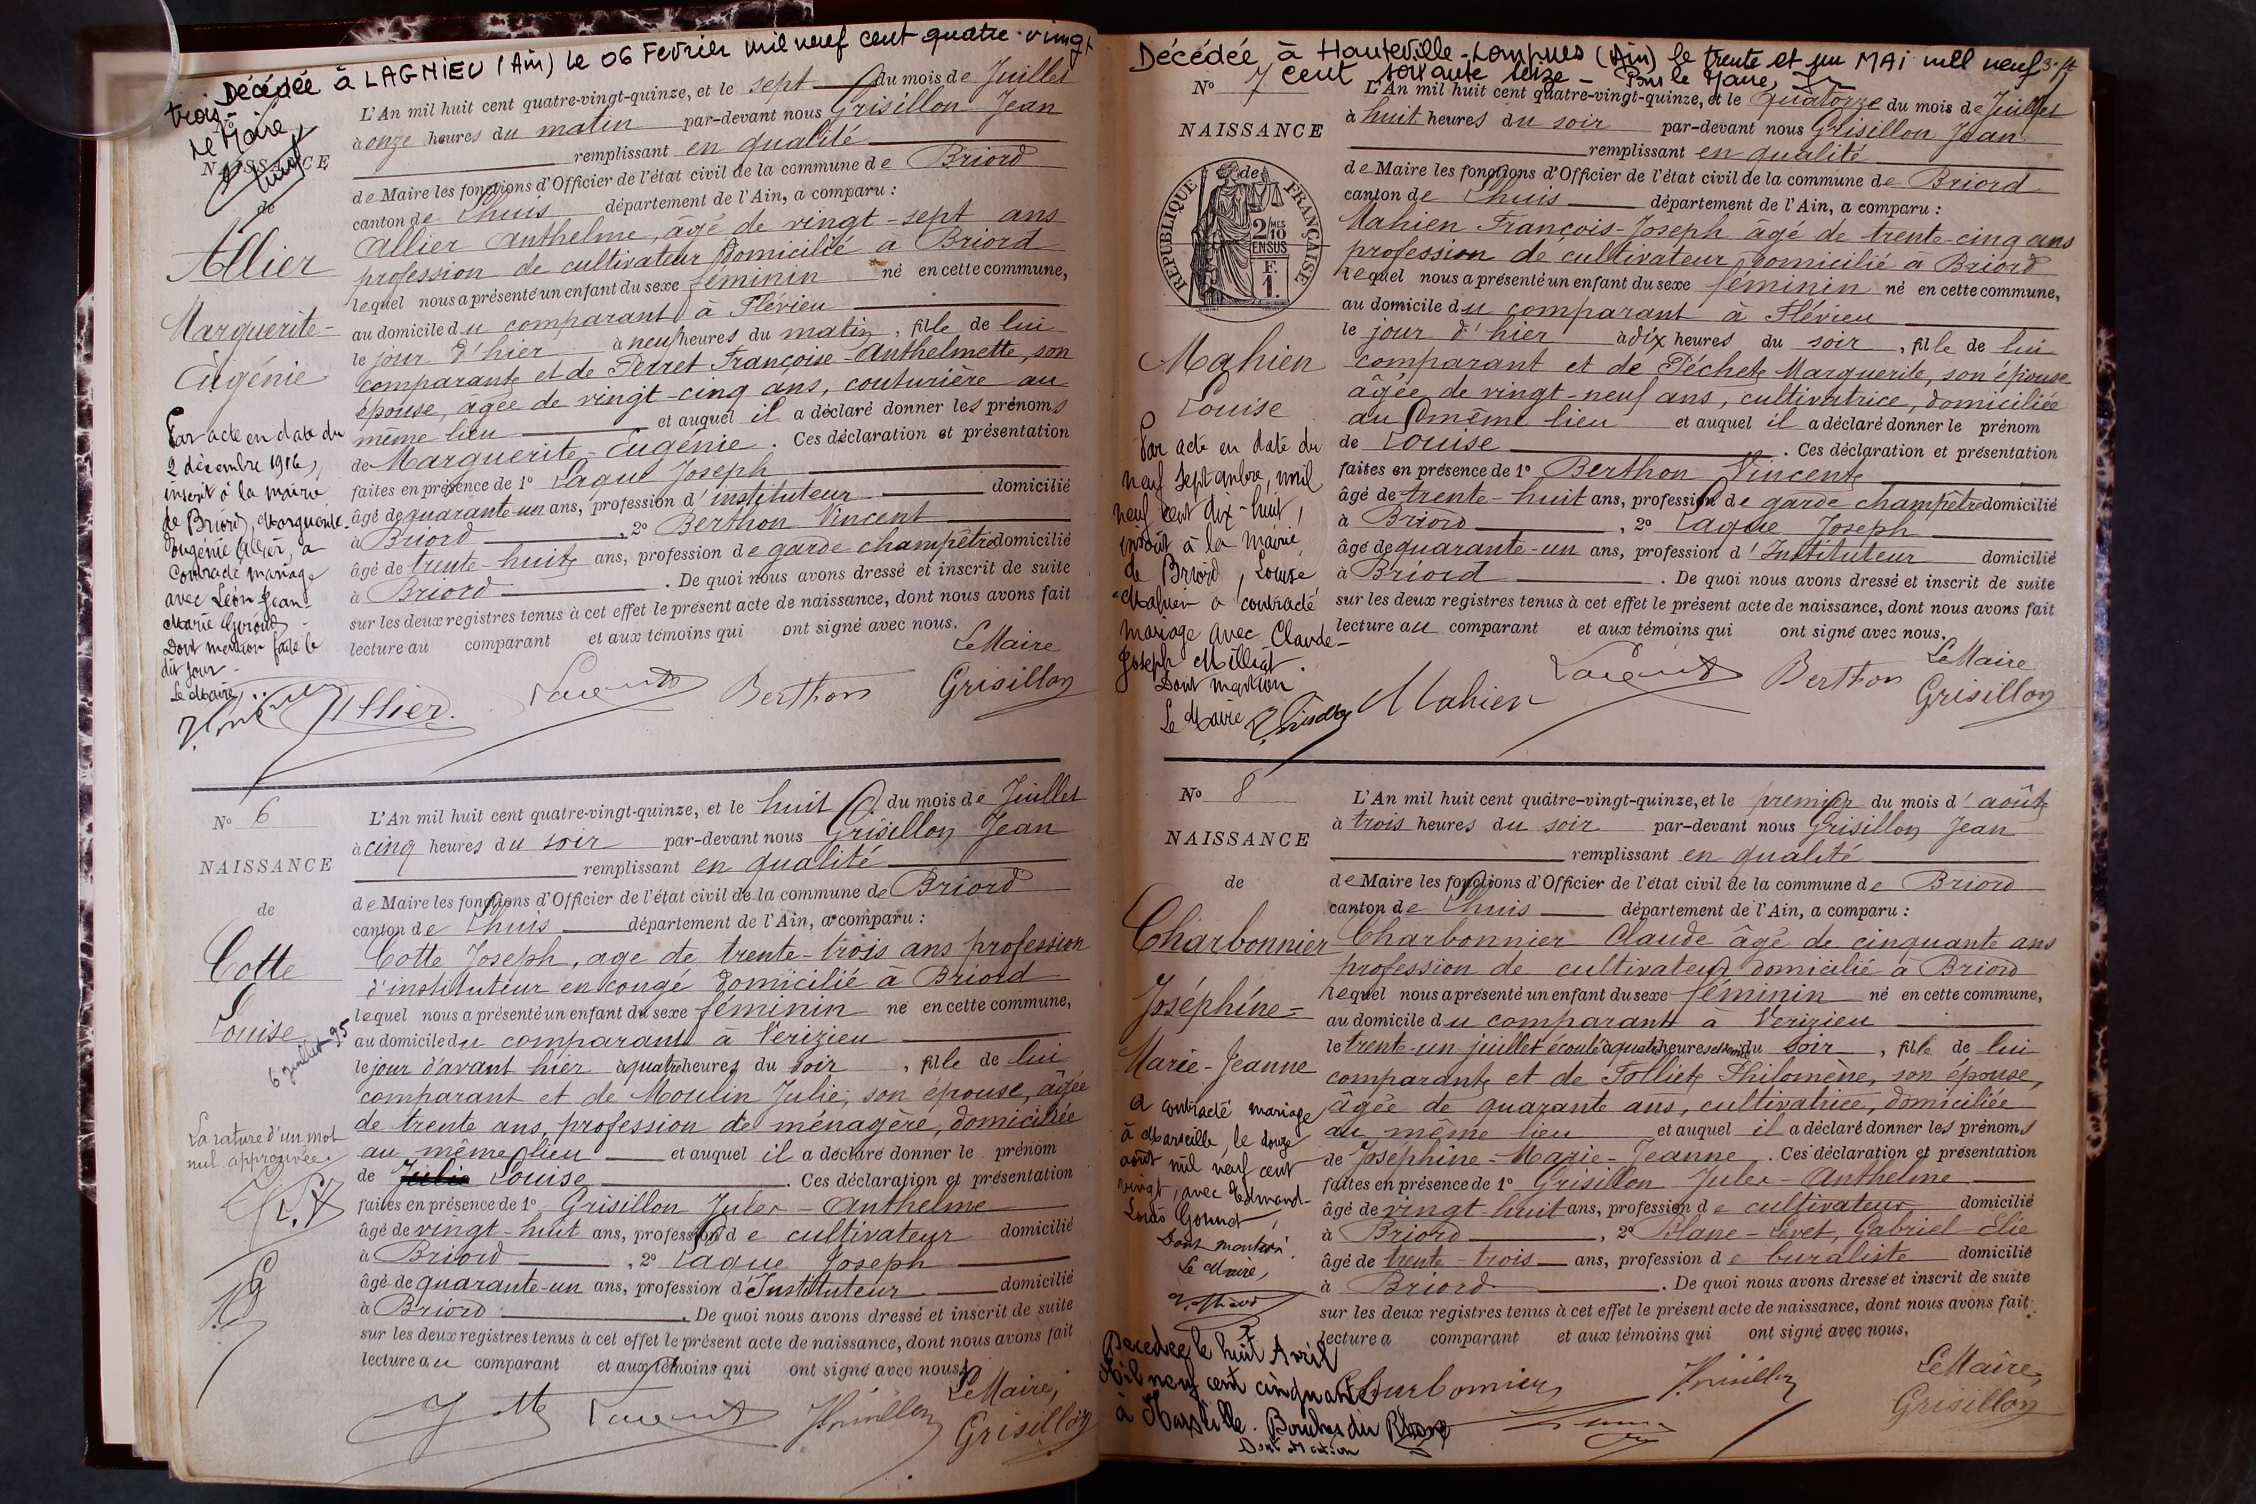 Décédée à LAGNIEU (Ain) le 06 Février mil neuf cent quatre-vingt
trois -
Le Maire,
NAISSANCE
de
Allier
Marguerite-
Eugénie
Par acte en date du
2 décembre 1916,
inscrit à la mairie
de Briord, Marguerite-
Eugénie Allier, a
contracté mariage
avec Léon Jean-
Marie Giroud
Dont mention faite le
dit jour -
Le Maire,
L'An mil huit cent quatre-vingt-quinze, et le sept du mois de Juillet
à onze heures du matin par-devant nous Grisillon Jean
remplissant en qualité
de Maire les fonctions d'Officier de l'état civil de la commune de Briord
canton de Lhuis département de l'Ain, a comparu :
Allier Anthelme, âgé de vingt-sept ans
profession de cultivateur domicilié à Briord
lequel nous a présenté un enfant du sexe féminin né en cette commune,
au domicile du comparant à Flévieu
le jour d'hier à neuf heures du matin, fille de lui
comparant et de Perret Françoise-Anthelmette, son
épouse, âgée de vingt-cinq ans, couturière au
même lieu et auquel il a déclaré donner les prénoms
de Marguerite-Eugénie. Ces déclaration et présentation
faites en présence de 1º Lague Joseph
âgé de quarante-un ans, profession d'instituteur domicilié
à Briord, 2º Berthon Vincent
âgé de trente-huit ans, profession de garde champêtre domicilié
à Briord. De quoi nous avons dressé et inscrit de suite
sur les deux registres tenus à cet effet le présent acte de naissance, dont nous avons fait
lecture au comparant et aux témoins qui ont signé avec nous.
Le Maire
Allier Berthon Grisillon
Nº 6
NAISSANCE
de
Cotte
Louise
6 juillet 95
La rature d'un mot
nul approuvée.
L'An mil huit cent quatre-vingt-quinze, et le huit du mois de Juillet
à cinq heures du soir par-devant nous Grisillon Jean
remplissant en qualité
de Maire les fonctions d'Officier de l'état civil de la commune de Briord
canton de Lhuis département de l'Ain, a comparu :
Cotte Joseph, age de trente-trois ans profession
d'instituteur en congé domicilié à Briord
lequel nous a présenté un enfant du sexe féminin né en cette commune,
au domicile du comparant à Verizieu
le jour d'avant hier à quatre heures du soir, fille de lui
comparant et de Moulin Julie, son épouse, âgée
de trente ans, profession de ménagère, domiciliée
au même lieu et auquel il a déclaré donner le prénom
de Julie Louise. Ces déclaration et présentation
faites en présence de 1º Grisillon Jules-Anthelme
âgé de vingt-huit ans, profession de cultivateur domicilié
à Briord, 2º Lague Joseph
âgé de quarante-un ans, profession d'Instituteur domicilié
à Briord. De quoi nous avons dressé et inscrit de suite
sur les deux registres tenus à cet effet le présent acte de naissance, dont nous avons fait
lecture au comparant et aux témoins qui ont signé avec nous.
Le Maire,
Grisillon
Décédée à Hauteville-Lompnes (Ain) le trente et un MAI mil neuf
cent soixante seize - Pour le Maire,
Nº 7
NAISSANCE
REPUBLIQUE FRANÇAISE
2/10 MES
EN SUS
F.
1.
de
Mahien
Louise
Par acte en date du
neuf septembre, mil
neuf cent dix-huit,
inscrit à la mairie
de Briord, Louise
Mahien a contracté
mariage avec Claude-
Joseph Milliat.
Dont mention
Le Maire
L'An mil huit cent quatre-vingt-quinze, et le Quatorze du mois de Juillet
à huit heures du soir par-devant nous Grisillon Jean
remplissant en qualité
de Maire les fonctions d'Officier de l'état civil de la commune de Briord
canton de Lhuis département de l'Ain, a comparu :
Mahien François-Joseph âgé de trente-cinq ans
profession de cultivateur domicilié à Briord
lequel nous a présenté un enfant du sexe féminin né en cette commune,
au domicile du comparant à Flévieu
le jour d'hier à dix heures du soir, fille de lui
comparant et de Péchet Marguerite, son épouse
âgée de vingt-neuf ans, cultivatrice, domiciliée
au même lieu et auquel il a déclaré donner le prénom
de Louise. Ces déclaration et présentation
faites en présence de 1º Berthon Vincent
âgé de trente-huit ans, profession de garde champêtre domicilié
à Briord, 2º Lague Joseph
âgé de quarante-un ans, profession d'Instituteur domicilié
à Briord. De quoi nous avons dressé et inscrit de suite
sur les deux registres tenus à cet effet le présent acte de naissance, dont nous avons fait
lecture au comparant et aux témoins qui ont signé avec nous.
Le Maire
Mahien Berthon Grisillon
Nº 8
NAISSANCE
de
Charbonnier
Joséphine-
Marie-Jeanne
a contracté mariage
à Marseille, le douze
août mil neuf cent
vingt, avec Edmond-
Louis
Dont mention.
Le Maire,
Décédée le huit Avril
Mil neuf cent cinquante
à Marseille. Bouches du Rhône
Dont Mention
L'An mil huit cent quatre-vingt-quinze, et le premier du mois d'août
à trois heures du soir par-devant nous Grisillon Jean
remplissant en qualité
de Maire les fonctions d'Officier de l'état civil de la commune de Briord
canton de Lhuis département de l'Ain, a comparu :
Charbonnier Claude âgé de cinquante ans
profession de cultivateur domicilié à Briord
lequel nous a présenté un enfant du sexe féminin né en cette commune,
au domicile du comparant à Verizieu
le trente-un juillet écoulé à quatre heures du soir, fille de lui
comparant et de Tolliet Philomène, son épouse,
âgée de quarante ans, cultivatrice, domiciliée
au même lieu et auquel il a déclaré donner les prénoms
de Joséphine-Marie-Jeanne. Ces déclaration et présentation
faites en présence de 1º Grisillon Jules-Anthelme
âgé de vingt huit ans, profession de cultivateur domicilié
à Briord, 2º Gabriel-Elie
âgé de trente-trois ans, profession de buraliste domicilié
à Briord. De quoi nous avons dressé et inscrit de suite
sur les deux registres tenus à cet effet le présent acte de naissance, dont nous avons fait
lecture a comparant et aux témoins qui ont signé avec nous.
Charbonnier Le Maire,
Grisillon